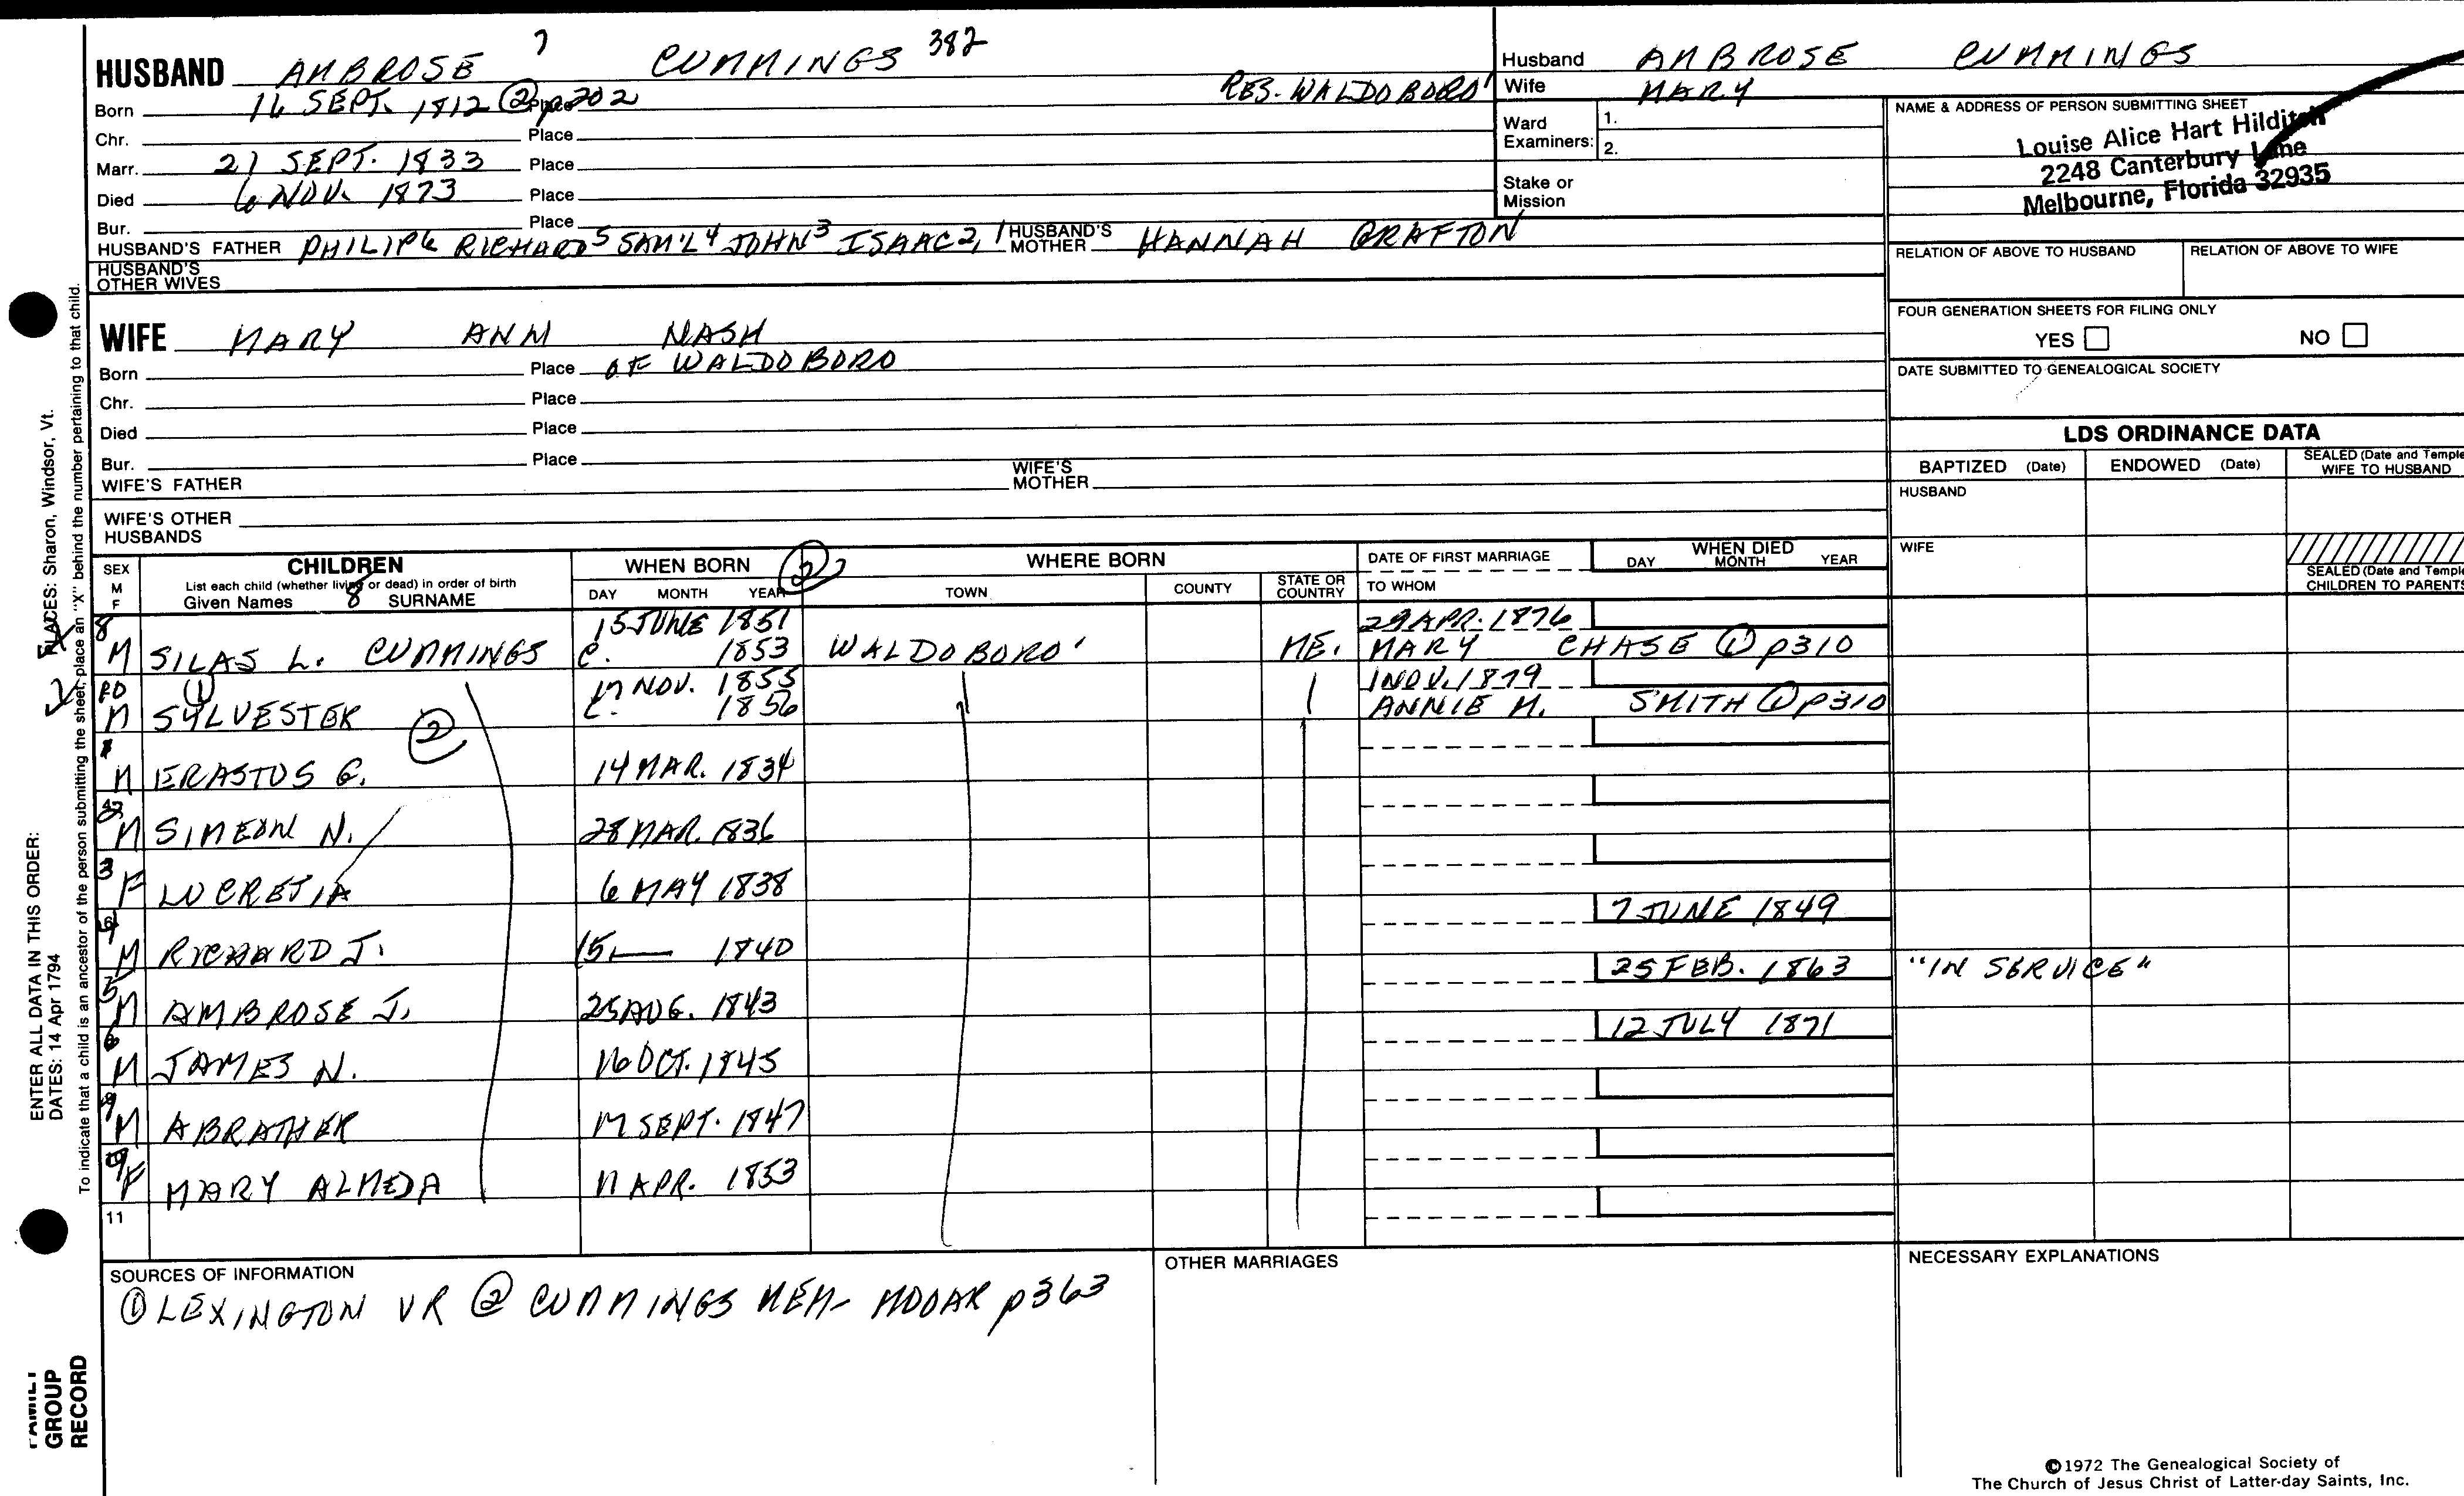 7
HUSBAND AMBROSE CUMMINGS 382
Born 16 SEPT. 1812 ② p202 Place RES. WALDOBORO'
Chr. Place
Marr. 21 SEPT. 1833 Place
Died 6 NOV. 1873 Place
Bur. Place
HUSBAND'S FATHER PHILIP6 RICHARD5 SAM'L4 JOHN3 ISAAC2,1 HUSBAND'S MOTHER HANNAH GRAFTON
HUSBAND'S OTHER WIVES
WIFE MARY ANN NASH
Born Place OF WALDOBORO
Chr. Place
Died Place
Bur. Place
WIFE'S FATHER WIFE'S MOTHER
WIFE'S OTHER HUSBANDS
Husband AMBROSE CUMMINGS
Wife MARY
Ward Examiners: 1.
2.
Stake or Mission
NAME & ADDRESS OF PERSON SUBMITTING SHEET
Louise Alice Hart Hilditch
2248 Canterbury Lane
Melbourne, Florida 32935
RELATION OF ABOVE TO HUSBAND RELATION OF ABOVE TO WIFE
FOUR GENERATION SHEETS FOR FILING ONLY
YES NO
DATE SUBMITTED TO GENEALOGICAL SOCIETY
LDS ORDINANCE DATA
BAPTIZED (Date) ENDOWED (Date) SEALED (Date and Temple WIFE TO HUSBAND
HUSBAND
WIFE
SEALED (Date and Temple CHILDREN TO PARENTS
SEX M F CHILDREN WHEN BORN ② WHERE BORN DATE OF FIRST MARRIAGE WHEN DIED
List each child (whether living or dead) in order of birth DAY MONTH YEAR
Given Names 8 SURNAME DAY MONTH YEAR TOWN COUNTY STATE OR COUNTRY TO WHOM
8 15 JUNE 1851 29 APR. 1876
M SILAS L. CUMMINGS C. 1853 WALDOBORO' ME. MARY CHASE ① p310
10 ① 17 NOV. 1855 1 NOV. 1879
M SYLVESTER C. 1856 ANNIE M. SMITH ① p310
②
1 M ERASTUS G. 14 MAR. 1834
2 M SIMEON N. 28 MAR. 1836
3 F LUCRETIA 6 MAY 1838
7 JUNE 1849
4 M RICHARD J. 15 — 1840
25 FEB. 1863 "IN SERVICE"
5 M AMBROSE J. 25 AUG. 1843
12 JULY 1871
6 M JAMES N. 16 OCT. 1845
M ABRATHER 17 SEPT. 1847
9 F MARY ALMEDA 11 APR. 1853
11
SOURCES OF INFORMATION
① LEXINGTON VR ② CUMMINGS MEM- MOOAR p363
OTHER MARRIAGES
NECESSARY EXPLANATIONS
©1972 The Genealogical Society of
The Church of Jesus Christ of Latter-day Saints, Inc.
PLACES: Sharon, Windsor, Vt.
ENTER ALL DATA IN THIS ORDER:
DATES: 14 Apr 1794
To indicate that a child is an ancestor of the person submitting the sheet, place an "X" behind the number pertaining to that child.
FAMILY
GROUP
RECORD